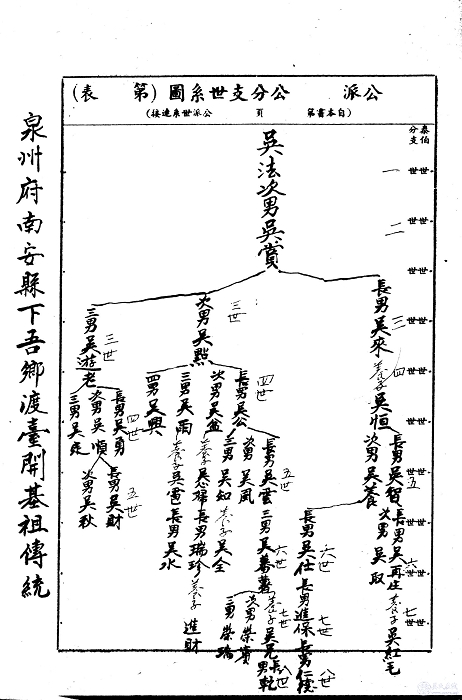 公派　公分支世系圖（第　表）
（自本書第　頁　公派世系連接）
泰伯
分支
世世一
世世二
世世三
世世四
世世五
世世六
世世七
世世
吳法次男吳賞
長男吳來
養子吳恒
長男吳智
次男吳養
長男吳再生
次男吳取
養子吳紅毛
次男吳點
三世
長男吳公
次男吳盆
三男吳雨
四男吳興
四世
長男吳雲
次男吳風
三男吳知
養子吳全
五世
三男吳蕃薯
六世
長男吳仕
六世
長男進保
七世
長男仁德
八世
養子吳兄
七世
長男乾
八世
次男榮寶
三男榮瑞
長男瑞珍
養子進財
養子吳雷
長男吳水
三男吳游老
三世
長男吳勇
次男吳順
四世
長男吳財
次男吳秋
五世
泉州府南安縣下吾鄉渡臺開基祖傳統